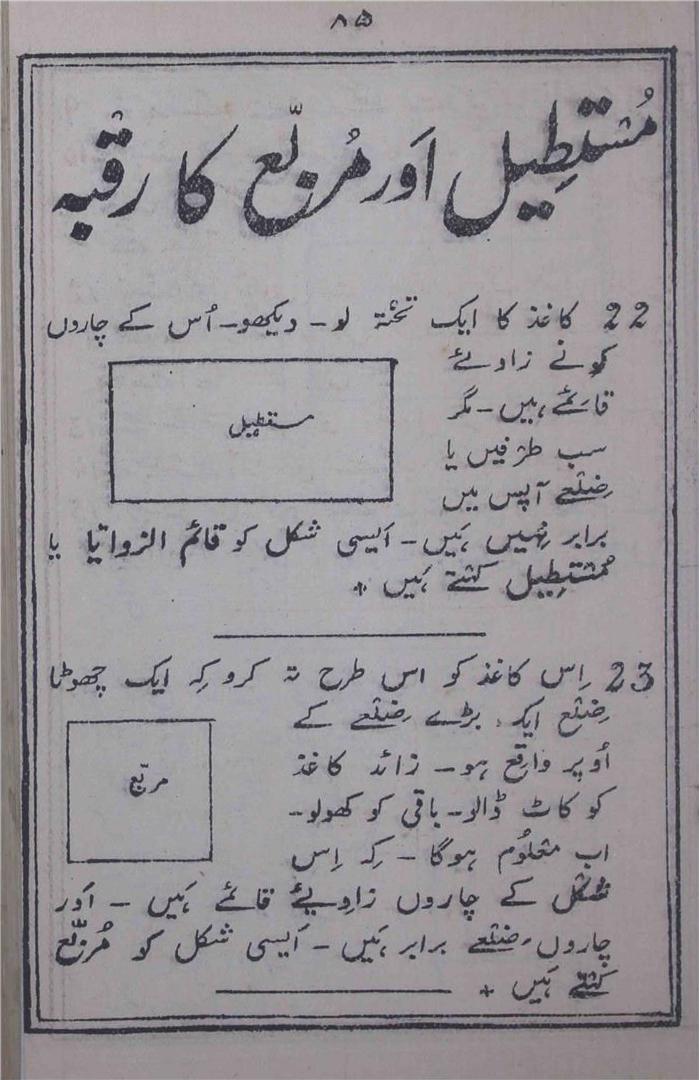 ۸۵
مُستطِیل اَور مُربّع کا رقبہ
22 کاغذ کا ایک تختہ لو۔ دیکھو۔ اُس کے چاروں
کونے زاویئے
قائمے ہیں۔ مگر
سب طرفیں یا
ضِلعے آپس میں
مستطیل
برابر نہیں ہیں۔ اَیسی شکل کو قائم الزوایا یا
مُستطِیل کہتے ہَیں *
23 اِس کاغذ کو اس طرح تہ کرو کہ ایک چھوٹا
ضِلع ایک بڑے ضِلعے کے
اُوپر واقع ہو۔ زائد کاغذ
کو کاٹ ڈالو۔ باقی کو کھولو۔
اب معلُوم ہوگا۔ کہ اِس
مربّع
شکل کے چاروں زاویئے قائمے ہَیں۔ اَور
چاروں ضِلعے برابر ہَیں۔ اَیسی شکل کو مُربّع
کہتے ہَیں *